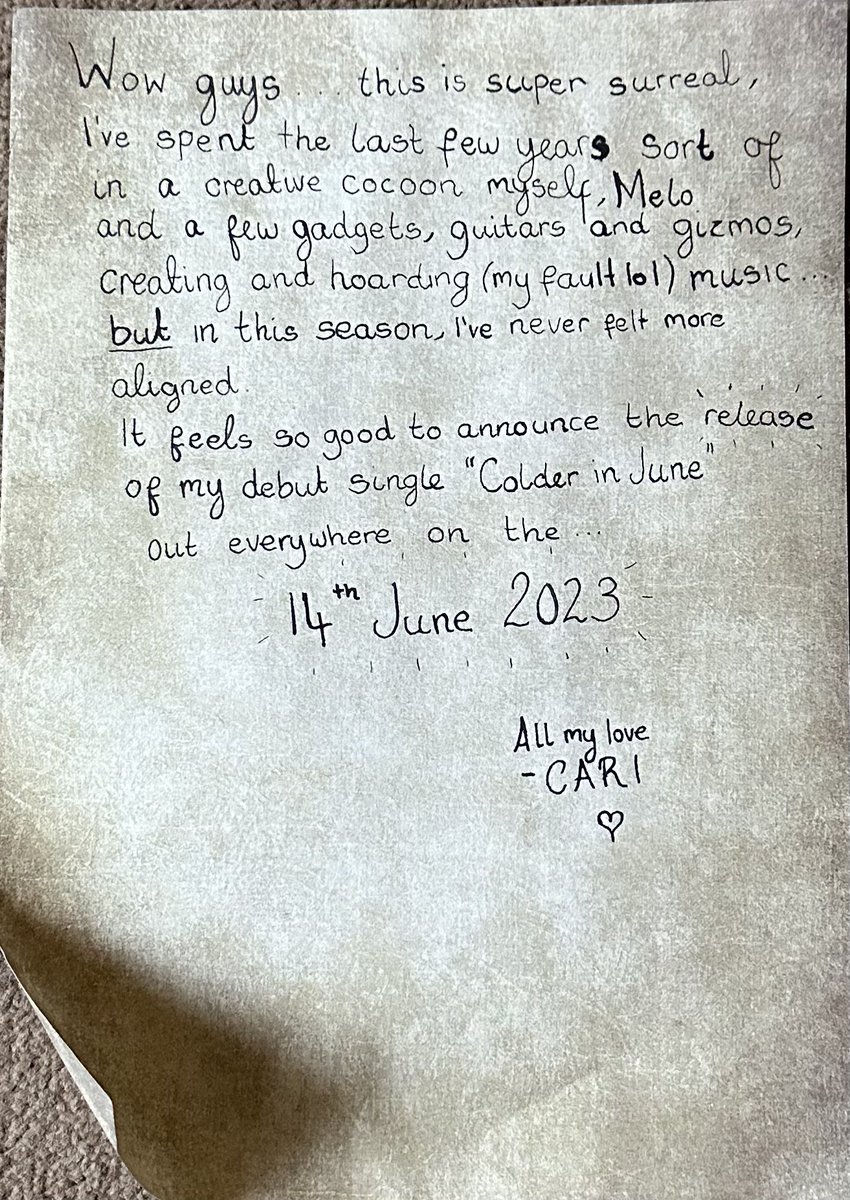 Wow guys ... this is super surreal,
I've spent the last few years sort of
in a creative cocoon myself, Melo
and a few gadgets, guitars and gizmos,
creating and hoarding (my fault lol) music ...
but in this season, I've never felt more
aligned.
It feels so good to announce the release
of my debut single "Colder in June"
out everywhere on the ...
14th June 2023
All my love
- CARI
♡